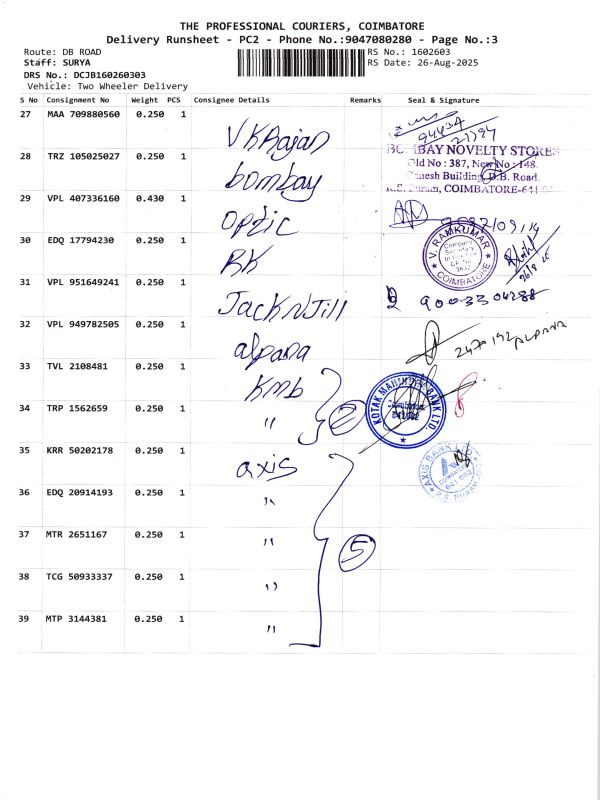 THE PROFESSIONAL COURIERS, COIMBATORE
Delivery Runsheet - PC2 - Phone No.:9047080280 - Page No.:3
Route: DB ROAD
RS No.: 1602603
Staff: SURYA
RS Date: 26-Aug-2025
DRS No.: DCJB160260303
Vehicle: Two Wheeler Delivery
S No Consignment No Weight PCS Consignee Details Remarks Seal & Signature
27 MAA 709880560 0.250 1 VK Rajan
94434
21794
28 TRZ 105025027 0.250 1 bombay
BOMBAY NOVELTY STORES
Old No : 387, New No : 148
Ganesh Building, D.B. Road,
R.S. Puram, COIMBATORE-641 002
29 VPL 407336160 0.430 1 Optic
30 EDQ 17794230 0.250 1 RK
V. RAMKUMAR
Company
Secretary
COIMBATORE
31 VPL 951649241 0.250 1 Jack N Jill
90033 04288
32 VPL 949782505 0.250 1 alpana
247192 ALPANA
33 TVL 2108481 0.250 1 kmb
KOTAK MAHINDRA BANK LTD.
34 TRP 1562659 0.250 1 " 2
35 KRR 50202178 0.250 1 axis
AXIS BANK LTD
R.S. PURAM
36 EDQ 20914193 0.250 1 "
37 MTR 2651167 0.250 1 " 5
38 TCG 50933337 0.250 1 "
39 MTP 3144381 0.250 1 "